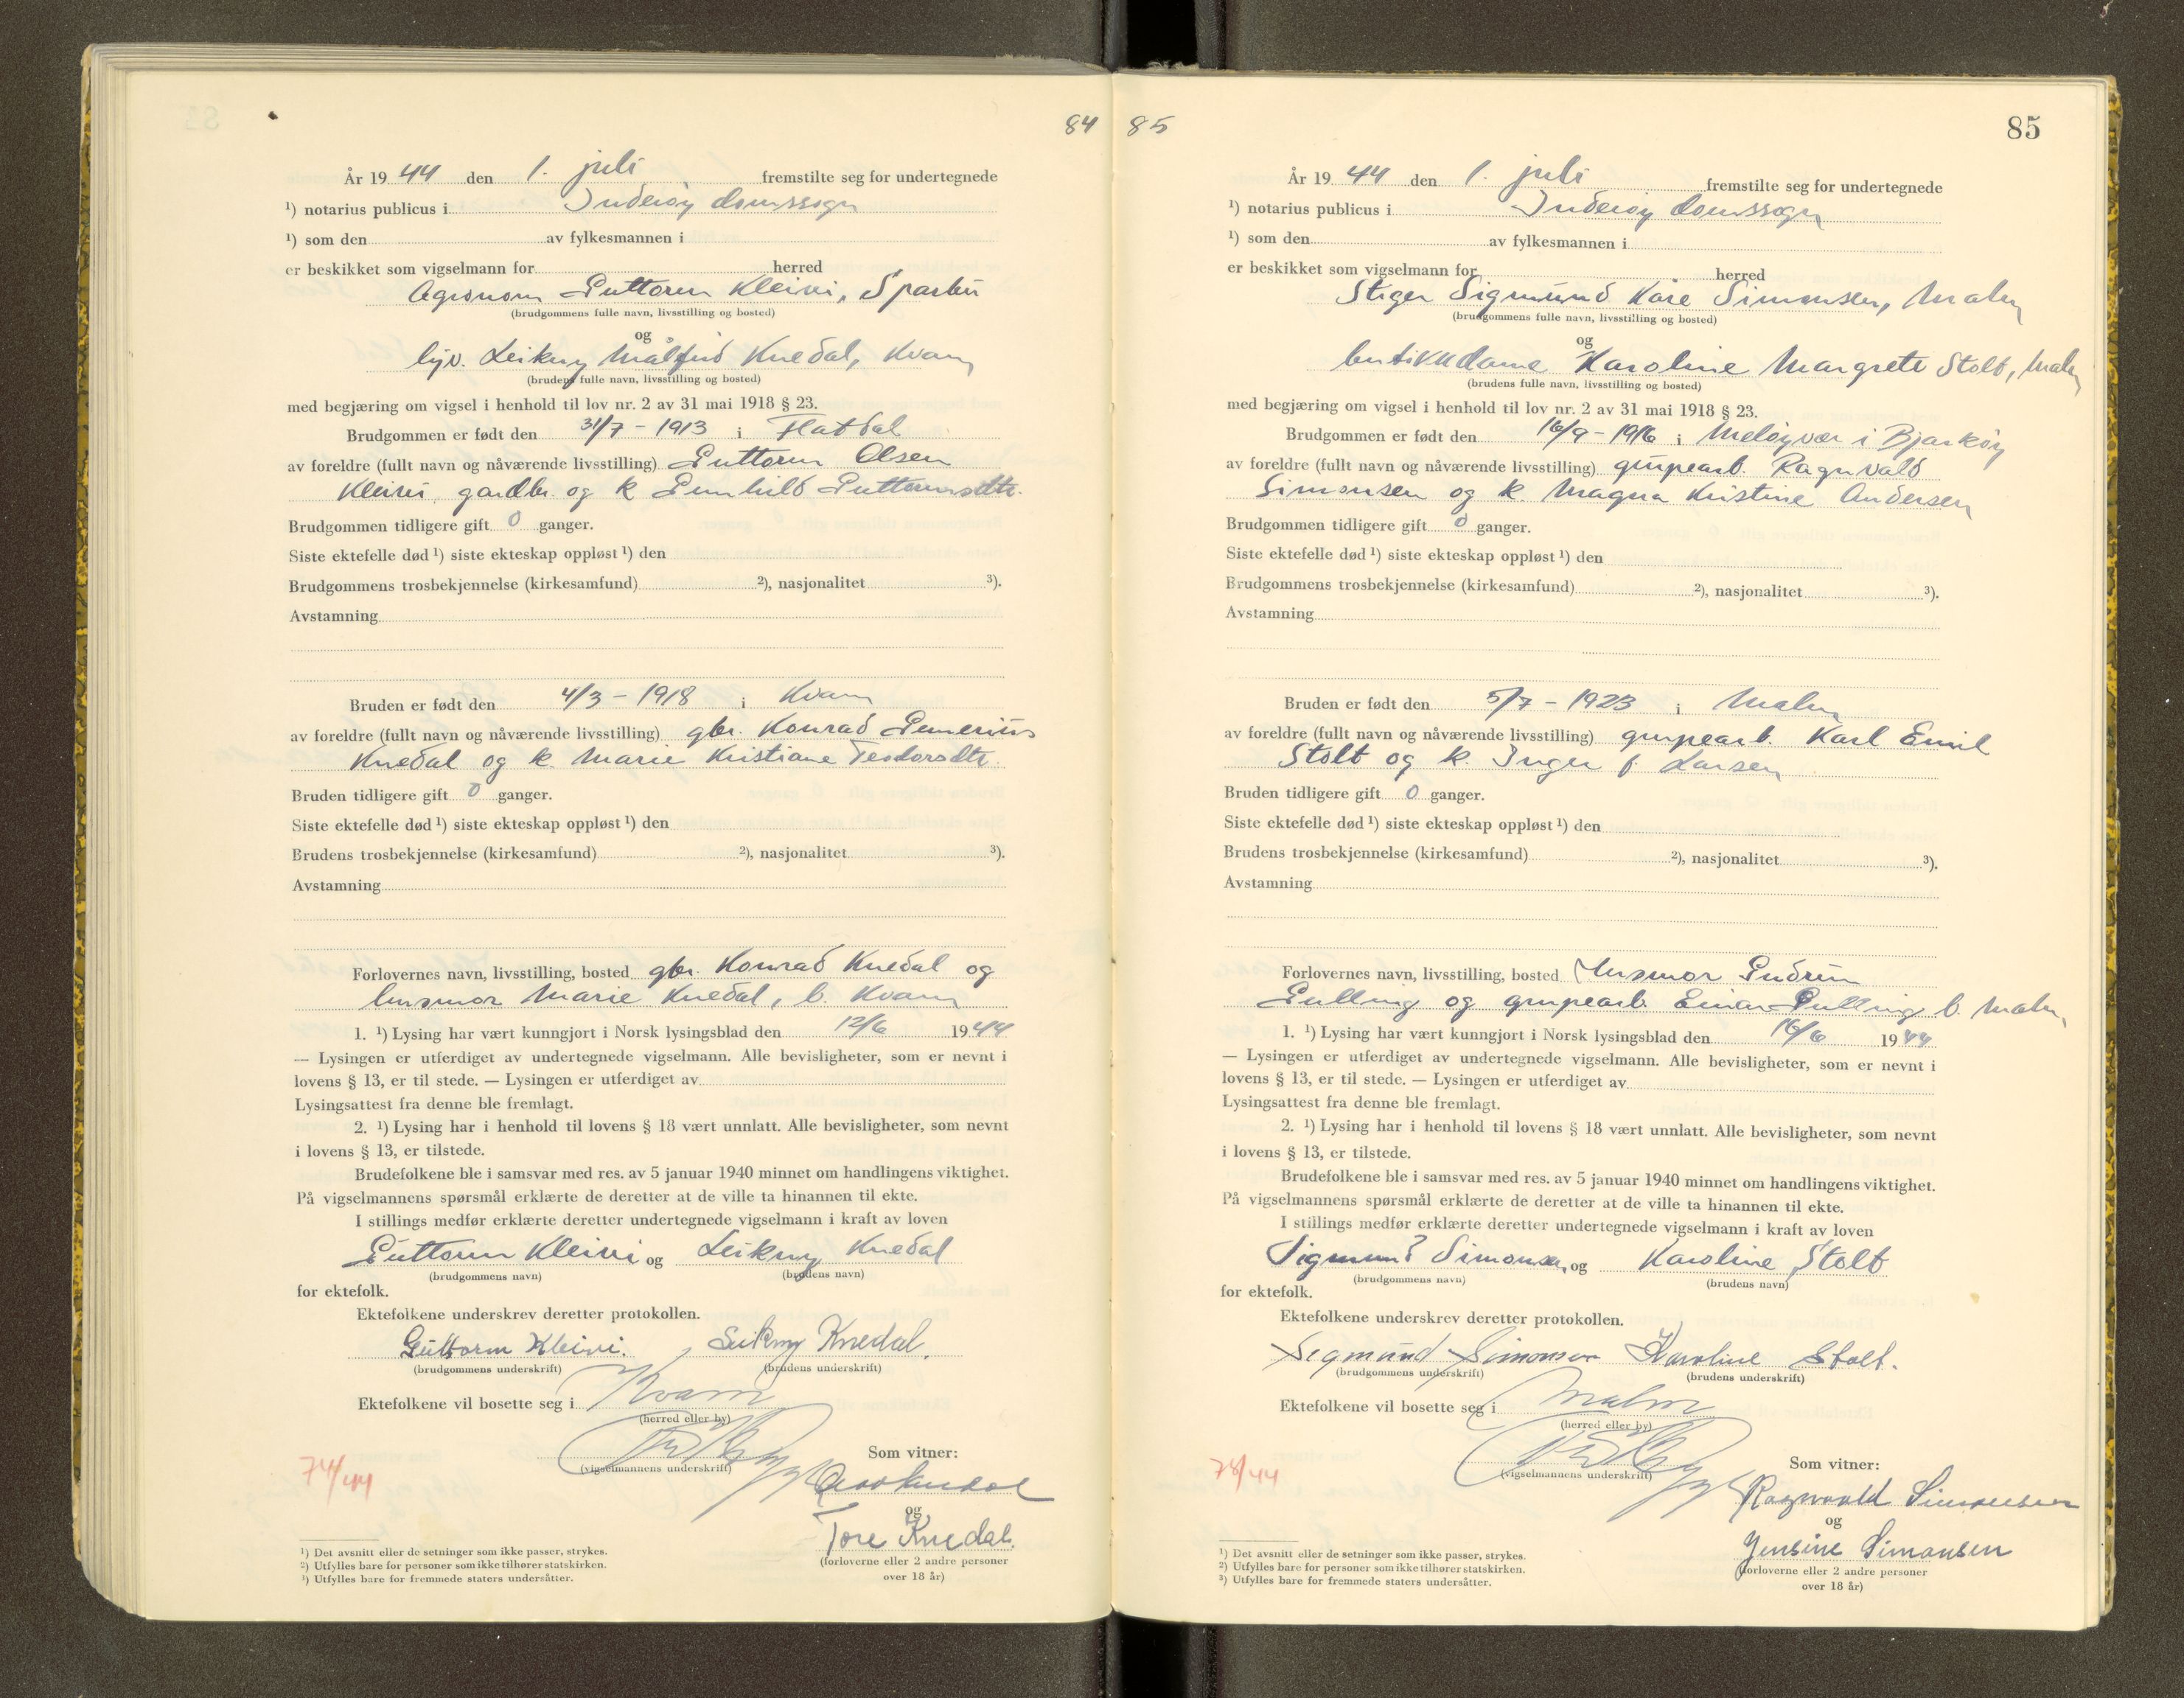 84
År 1944 den 1. juli fremstilte seg for undertegnede
¹) notarius publicus i Inderøy domssogn
¹) som den av fylkesmannen i
er beskikket som vigselmann for herred
Agronom Guttorm Kleivi, Sparbu
(brudgommens fulle navn, livsstilling og bosted)
og
Leikny Målfrid Knedal, Kvam
(brudens fulle navn, livsstilling og bosted)
med begjæring om vigsel i henhold til lov nr. 2 av 31 mai 1918 § 23.
Brudgommen er født den 31/7 - 1913 i Flatdal
av foreldre (fullt navn og nåværende livsstilling) Guttorm Olsen
Kleivi, gardbr. og k Gunhild Guttormsdtr.
Brudgommen tidligere gift 0 ganger.
Siste ektefelle død ¹) siste ekteskap oppløst ¹) den
Brudgommens trosbekjennelse (kirkesamfund) ²), nasjonalitet ³).
Avstamning
Bruden er født den 4/3 - 1918 i Kvam
av foreldre (fullt navn og nåværende livsstilling) gbr. Konrad
Knedal og k. Marie Kristiane Teodorsdtr.
Bruden tidligere gift 0 ganger.
Siste ektefelle død ¹) siste ekteskap oppløst ¹) den
Brudens trosbekjennelse (kirkesamfund) ²), nasjonalitet ³).
Avstamning
Forlovernes navn, livsstilling, bosted gbr. Konrad Knedal og
husmor Marie Knedal, b. Kvam
1. ¹) Lysing har vært kunngjort i Norsk lysingsblad den 12/6 1944
— Lysingen er utferdiget av undertegnede vigselmann. Alle bevisligheter, som er nevnt i
lovens § 13, er til stede. — Lysingen er utferdiget av
Lysingsattest fra denne ble fremlagt.
2. ¹) Lysing har i henhold til lovens § 18 vært unnlatt. Alle bevisligheter, som nevnt
i lovens § 13, er tilstede.
Brudefolkene ble i samsvar med res. av 5 januar 1940 minnet om handlingens viktighet.
På vigselmannens spørsmål erklærte de deretter at de ville ta hinannen til ekte.
I stillings medfør erklærte deretter undertegnede vigselmann i kraft av loven
Guttorm Kleivi og Leikny Knedal
(brudgommens navn) (brudens navn)
for ektefolk.
Ektefolkene underskrev deretter protokollen.
Guttorm Kleivi. Leikny Knedal.
(brudgommens underskrift) (brudens underskrift)
Ektefolkene vil bosette seg i Kvam
(herred eller by)
(vigselmannens underskrift)
Som vitner:
74/44
og
Tore Knedal.
(forloverne eller 2 andre personer
over 18 år)
¹) Det avsnitt eller de setninger som ikke passer, strykes.
²) Utfylles bare for personer som ikke tilhører statskirken.
³) Utfylles bare for fremmede staters undersåtter.
85
85
År 1944 den 1. juli fremstilte seg for undertegnede
¹) notarius publicus i Inderøy domssogn
¹) som den av fylkesmannen i
er beskikket som vigselmann for herred
Stiger Sigmund Kåre Simonsen, Malm
(brudgommens fulle navn, livsstilling og bosted)
og
butikkdame Karoline Margrete Stolt, Malm
(brudens fulle navn, livsstilling og bosted)
med begjæring om vigsel i henhold til lov nr. 2 av 31 mai 1918 § 23.
Brudgommen er født den 16/9 - 1916 i Meløyvær i Bjarkøy
av foreldre (fullt navn og nåværende livsstilling) grupearb. Ragnvald
Simonsen og k. Magna Kristine Andersen
Brudgommen tidligere gift 0 ganger.
Siste ektefelle død ¹) siste ekteskap oppløst ¹) den
Brudgommens trosbekjennelse (kirkesamfund) ²), nasjonalitet ³).
Avstamning
Bruden er født den 5/7 - 1923 i Malm
av foreldre (fullt navn og nåværende livsstilling) grupearb. Karl Emil
Stolt og k. Inger f. Larsen
Bruden tidligere gift 0 ganger.
Siste ektefelle død ¹) siste ekteskap oppløst ¹) den
Brudens trosbekjennelse (kirkesamfund) ²), nasjonalitet ³).
Avstamning
Forlovernes navn, livsstilling, bosted husmor Gudrun
Gulling og grupearb. Einar Gulling b. Malm
1. ¹) Lysing har vært kunngjort i Norsk lysingsblad den 16/6 1944
— Lysingen er utferdiget av undertegnede vigselmann. Alle bevisligheter, som er nevnt i
lovens § 13, er til stede. — Lysingen er utferdiget av
Lysingsattest fra denne ble fremlagt.
2. ¹) Lysing har i henhold til lovens § 18 vært unnlatt. Alle bevisligheter, som nevnt
i lovens § 13, er tilstede.
Brudefolkene ble i samsvar med res. av 5 januar 1940 minnet om handlingens viktighet.
På vigselmannens spørsmål erklærte de deretter at de ville ta hinannen til ekte.
I stillings medfør erklærte deretter undertegnede vigselmann i kraft av loven
Sigmund Simonsen og Karoline Stolt
(brudgommens navn) (brudens navn)
for ektefolk.
Ektefolkene underskrev deretter protokollen.
Sigmund Simonsen Karoline Stolt.
(brudgommens underskrift) (brudens underskrift)
Ektefolkene vil bosette seg i Malm
(herred eller by)
(vigselmannens underskrift)
Som vitner:
78/44
Ragnvald Simonsen
og
Jensine Simonsen
(forloverne eller 2 andre personer
over 18 år)
¹) Det avsnitt eller de setninger som ikke passer, strykes.
²) Utfylles bare for personer som ikke tilhører statskirken.
³) Utfylles bare for fremmede staters undersåtter.